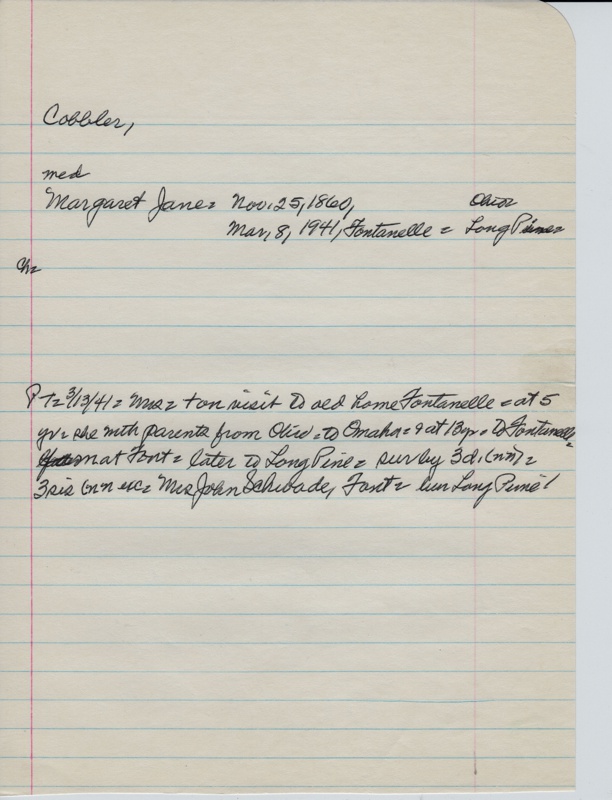 Cobbler,
med
Margaret Jane = Nov. 25, 1860, Ohio
Mar, 8, 1941, Fontanelle = Long Pine =
Ch =
Pt = 3/13/41 = Mrs = + on visit to old home Fontanelle = at 5
yr = she with parents from Ohio = to Omaha = & at 13 yr = to Fontanelle =
m at Font = later to Long Pine = sur by 3 d. (nn) =
3 sis (nn exc = Mrs John Schwade, Font = bur Long Pine!